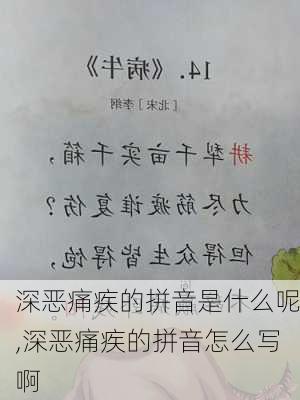 14.《病牛》
［北宋］李纲
耕犁千亩实千箱，
力尽筋疲谁复伤？
但得众生皆得饱，
深恶痛疾的拼音是什么呢
,深恶痛疾的拼音怎么写
啊